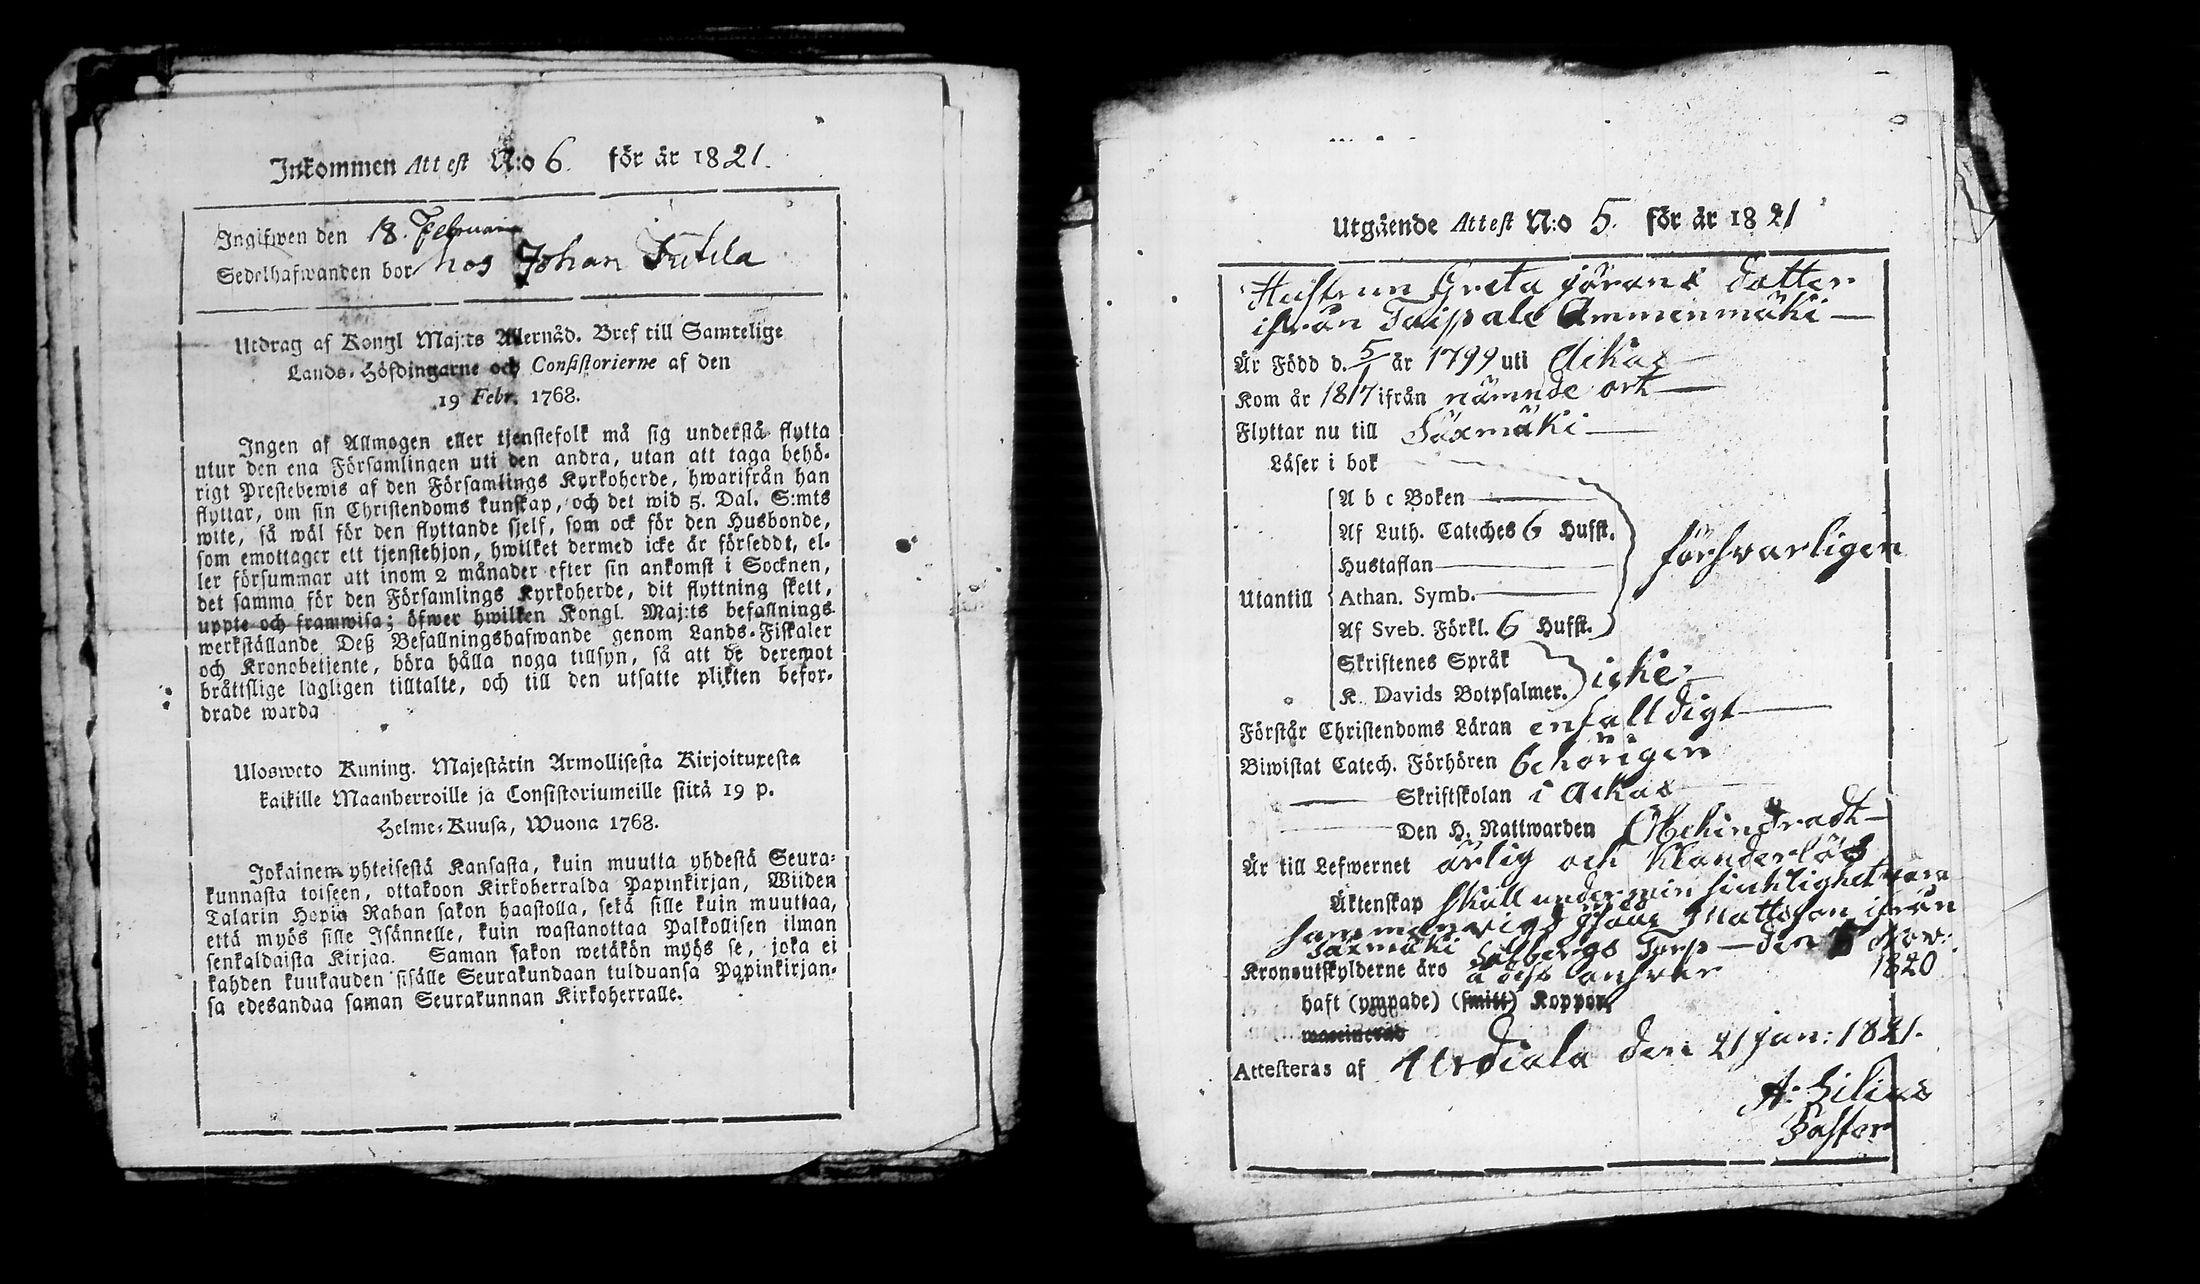 Inkommen Attest N:o 6. för år 1821.
Ingifwen den 18. Februari
Sedelhafwanden bor hos Johan
Utdrag af Kongl Maj:ts Allernåd. Bref till Samtelige
Lands-Höfdingarne och Consistorierne af den
19 Febr. 1768.
Ingen af Allmogen eller tjenstefolk må sig understå flytta
utur den ena Församlingen uti den andra, utan att taga behö-
rigt Prestebewis af den Församlings Kyrkoherde, hwarifrån han
flyttar, om sin Christendoms kunskap, och det wid 5. Dal. S:mts
wite, så wäl för den flyttande sjelf, som ock för den Husbonde,
som emottager ett tjenstehjon, hwilket dermed icke är försedt, el-
ler försummar att inom 2 månader efter sin ankomst i Socknen,
det samma för den Församlings Kyrkoherde, dit flyttning skett,
uppte och framwisa; öfwer hwilken Kongl. Maj:ts befallnings
werkställande Deß Befallningshafwande genom Lands-Fiskaler
och Kronobetjente, böra hålla noga tillsyn, så att de deremot
bråttslige lagligen tilltalte, och till den utsatte plikten befor-
drade warda
Ulosweto Kuning. Majestätin Armollisesta Kirjoituxesta
kaikille Maanherroille ja Consistoriumeille siitä 19 p.
Helme-Kuusa, Wuona 1768.
Jokainen yhteisestä Kansasta, kuin muutta yhdestä Seura-
kunnasta toiseen, ottakoon Kirkoherralda Papinkirjan, Wiiden
Talarin Hopia Rahan sakon haastolla, sekä sille kuin muuttaa,
että myös sille Isännelle, kuin wastanottaa Palkollisen ilman
senkaldaista Kirjaa. Saman sakon wetäkön myös se, joka ei
kahden kuukauden sisälle Seurakundaan tulduansa Papinkirjan-
sa edesandaa saman Seurakunnan Kirkoherralle.
Utgående Attest N:o 5. för år 1821
Hustrun Greta Jörans dotter
ifrån Taipale Ammenmäki
Är Född d. 5/1 år 1799 uti Ackas
Kom år 1817 ifrån nämnde ort
Flyttar nu till Säxmäki
Läser i bok
A b c Boken
Af Luth. Cateches 6 Hufst.
Hustaflan
försvarligen
Utantill Athan. Symb.
Af Sveb. Förkl. 6 Hufst.
Skriftenes Språk
K. Davids Botpsalmer. icke
Förstår Christendoms Läran enfalldigt
Biwistat Catech. Förhören behörigen
Skriftskolan i Ackas
Den H. Nattwarden Obehindradt
Är till Lefwernet ärlig och klanderlös
Äktenskap skall under min siuklighet vara
sammanvigd Mattsson ifrån
Säxmäki Torp den 5 Nov:
Kronoutskylderne äro 1820
haft (ympade) (smitt) Koppor
Attesteras af Urdiala den 21 Jan: 1821.
A: Lilius
Pastor